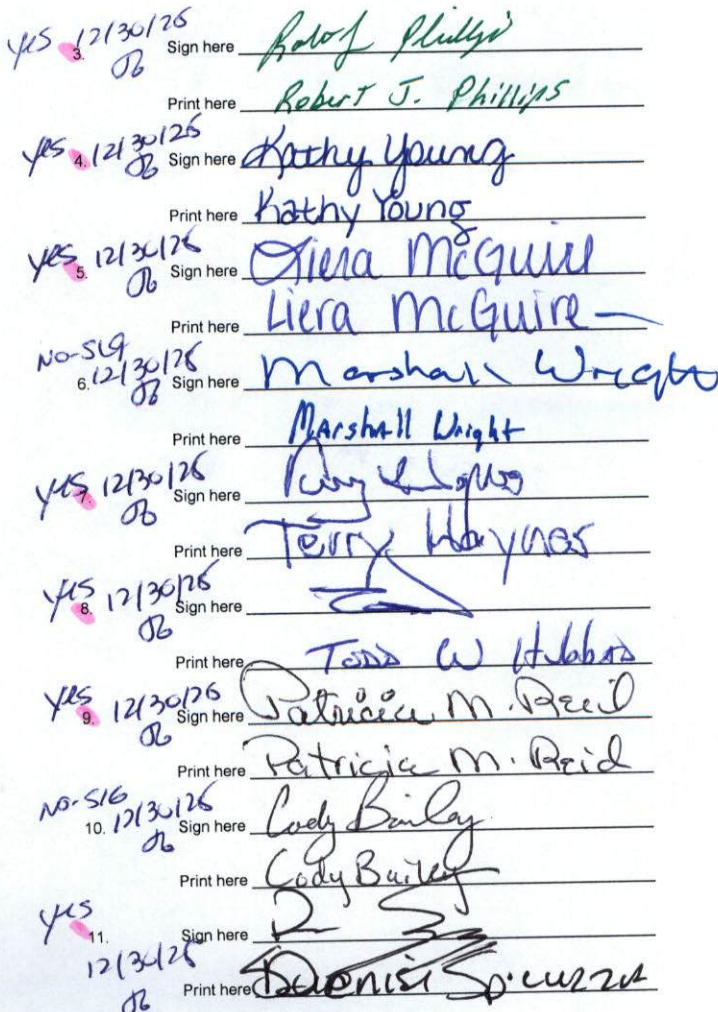 yes 12/30/25
3. Sign here Robert Phillips
Print here Robert J. Phillips
yes 4. 12/30/25 Sign here Kathy Young
Print here Kathy Young
yes 12/30/25
5. Sign here Liera McGuire
Print here Liera McGuire
NO-
6. 12/30/25 Sign here Marshall Wright
Print here Marshall Wright
yes 12/30/25
7. Sign here
Print here Terry Haynes
yes 12/30/25
8. Sign here
Print here Todd W
yes 12/30/25
9. Sign here Patricia M. Reid
Print here Patricia M. Reid
NO-
10. 12/30/25 Sign here Cody Bailey
Print here Cody Bailey
yes
11. Sign here
12/30/25
Print here